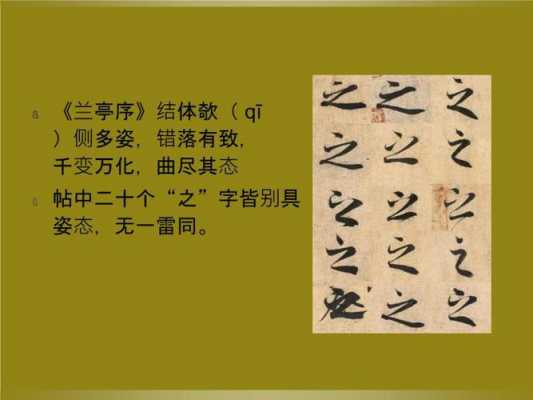 《兰亭序》结体欹（ qī
）侧多姿，错落有致，
千变万化，曲尽其态
帖中二十个“之”字皆别具
姿态，无一雷同。
之 之 之
之 之 之
之 之 之
之 之 之
之 之